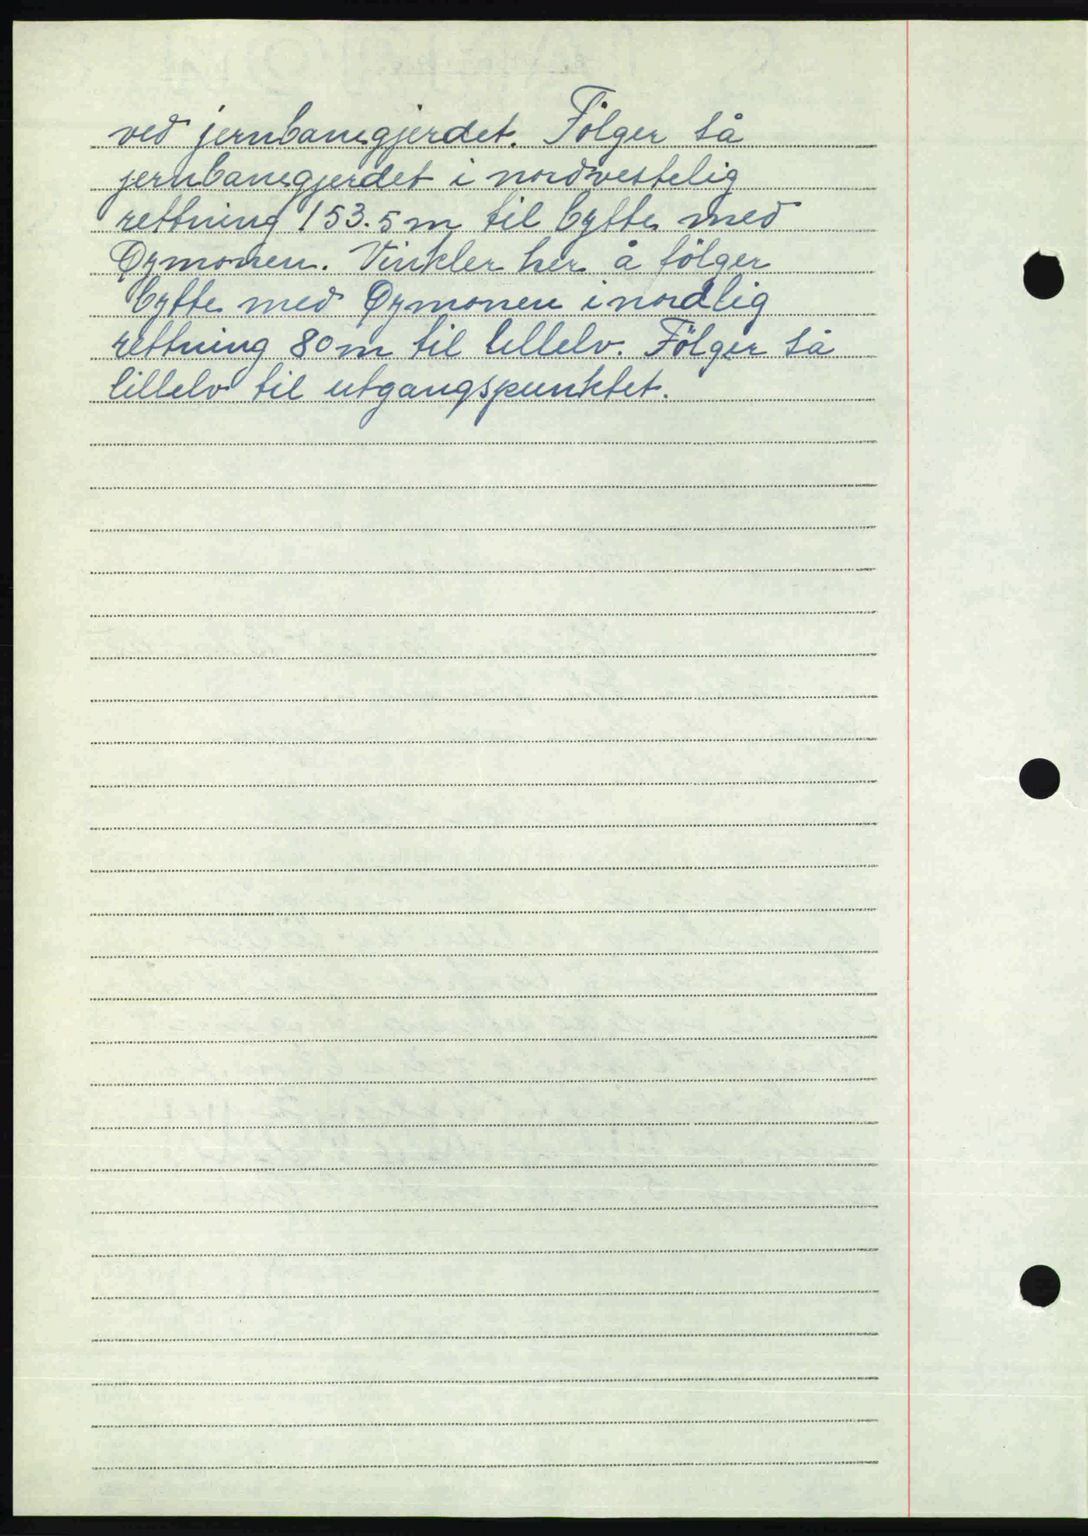 ved jernbanegjerdet. Følger så
jernbanegjerdet i nordvestelig
rettning 153.5 m til bytte med
Øymonen. Vinkler her å følger
bytte med Øymonen i nordlig
rettning 80 m til lillelv. Følger så
lillelv til utgangspunktet.